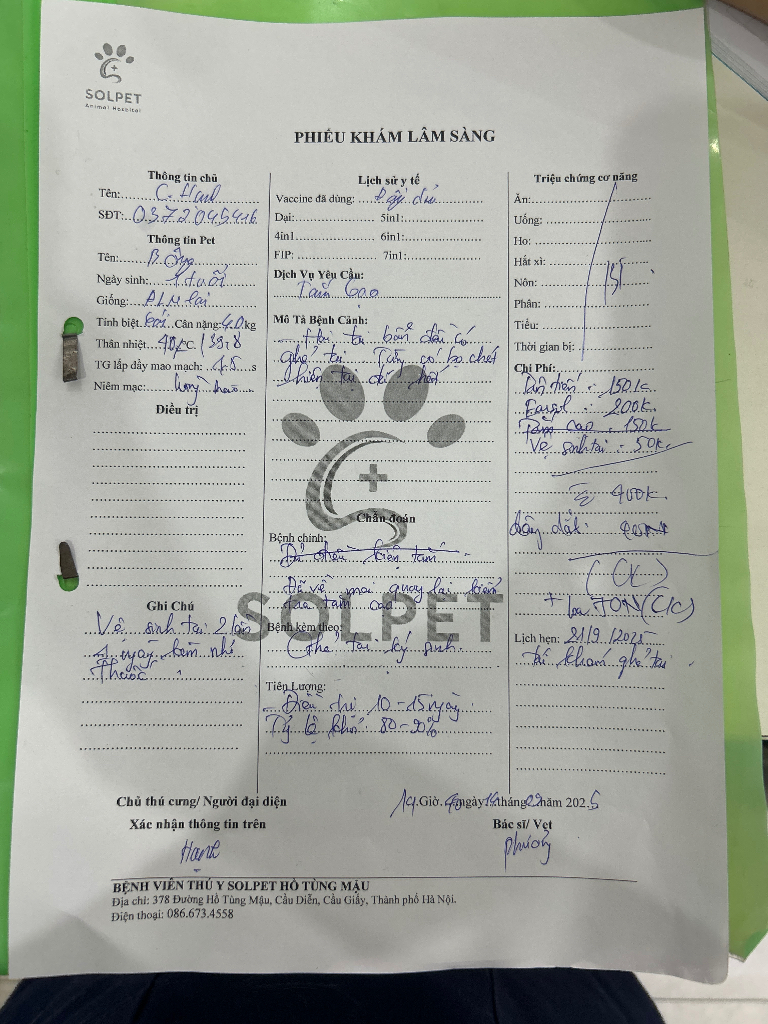 SOLPET
Animal Hospital
PHIẾU KHÁM LÂM SÀNG
Thông tin chủ
Tên: C. Hạnh
SĐT: 0372045416
Thông tin Pet
Tên: B.
Ngày sinh: 1 tuổi
Giống: ALN lai
Tính biệt: Cái Cân nặng: 4.0 kg
Thân nhiệt 40,0C / 39,8
TG lấp đầy mao mạch: 1.5 s
Niêm mạc: hồng hào
Điều trị
Ghi Chú
Vệ sinh tai 2 lần
1 ngày kèm nhỏ
thuốc
Lịch sử y tế
Vaccine đã dùng: Đầy đủ
Dại: 5in1:
4in1 6in1:
FIP: 7in1:
Dịch Vụ Yêu Cầu:
Tắm Cạo
Mô Tả Bệnh Cảnh:
- Hai tai bẩn
ghẻ tai.
Chẩn đoán
Bệnh chính:
Đủ điều kiện tắm
mai quay lại
Bệnh kèm theo:
Ghẻ tai ký sinh.
Tiên Lượng:
- Điều trị 10 - 15 ngày
Tỷ lệ khỏi 80 - 90%
Triệu chứng cơ năng
Ăn:
Uống:
Ho:
Hắt xì:
Nôn:
Phân:
Tiểu:
Thời gian bị:
BT
Chi Phí:
150k
200k
Tắm cạo 150k
Vệ sinh tai: 50k
Σ 400k
dây dắt:
(CK)
+
Lịch hẹn: 21/9/2025
Tái khám ghẻ tai
Chủ thú cưng/ Người đại diện
Xác nhận thông tin trên
Hạnh
19 Giờ. 40 ngày 14 tháng 09 năm 2025
Bác sĩ/ Vẹt
Phương
BỆNH VIỆN THÚ Y SOLPET HỒ TÙNG MẬU
Địa chỉ: 378 Đường Hồ Tùng Mậu, Cầu Diễn, Cầu Giấy, Thành phố Hà Nội.
Điện thoại: 086.673.4558
SOLPET